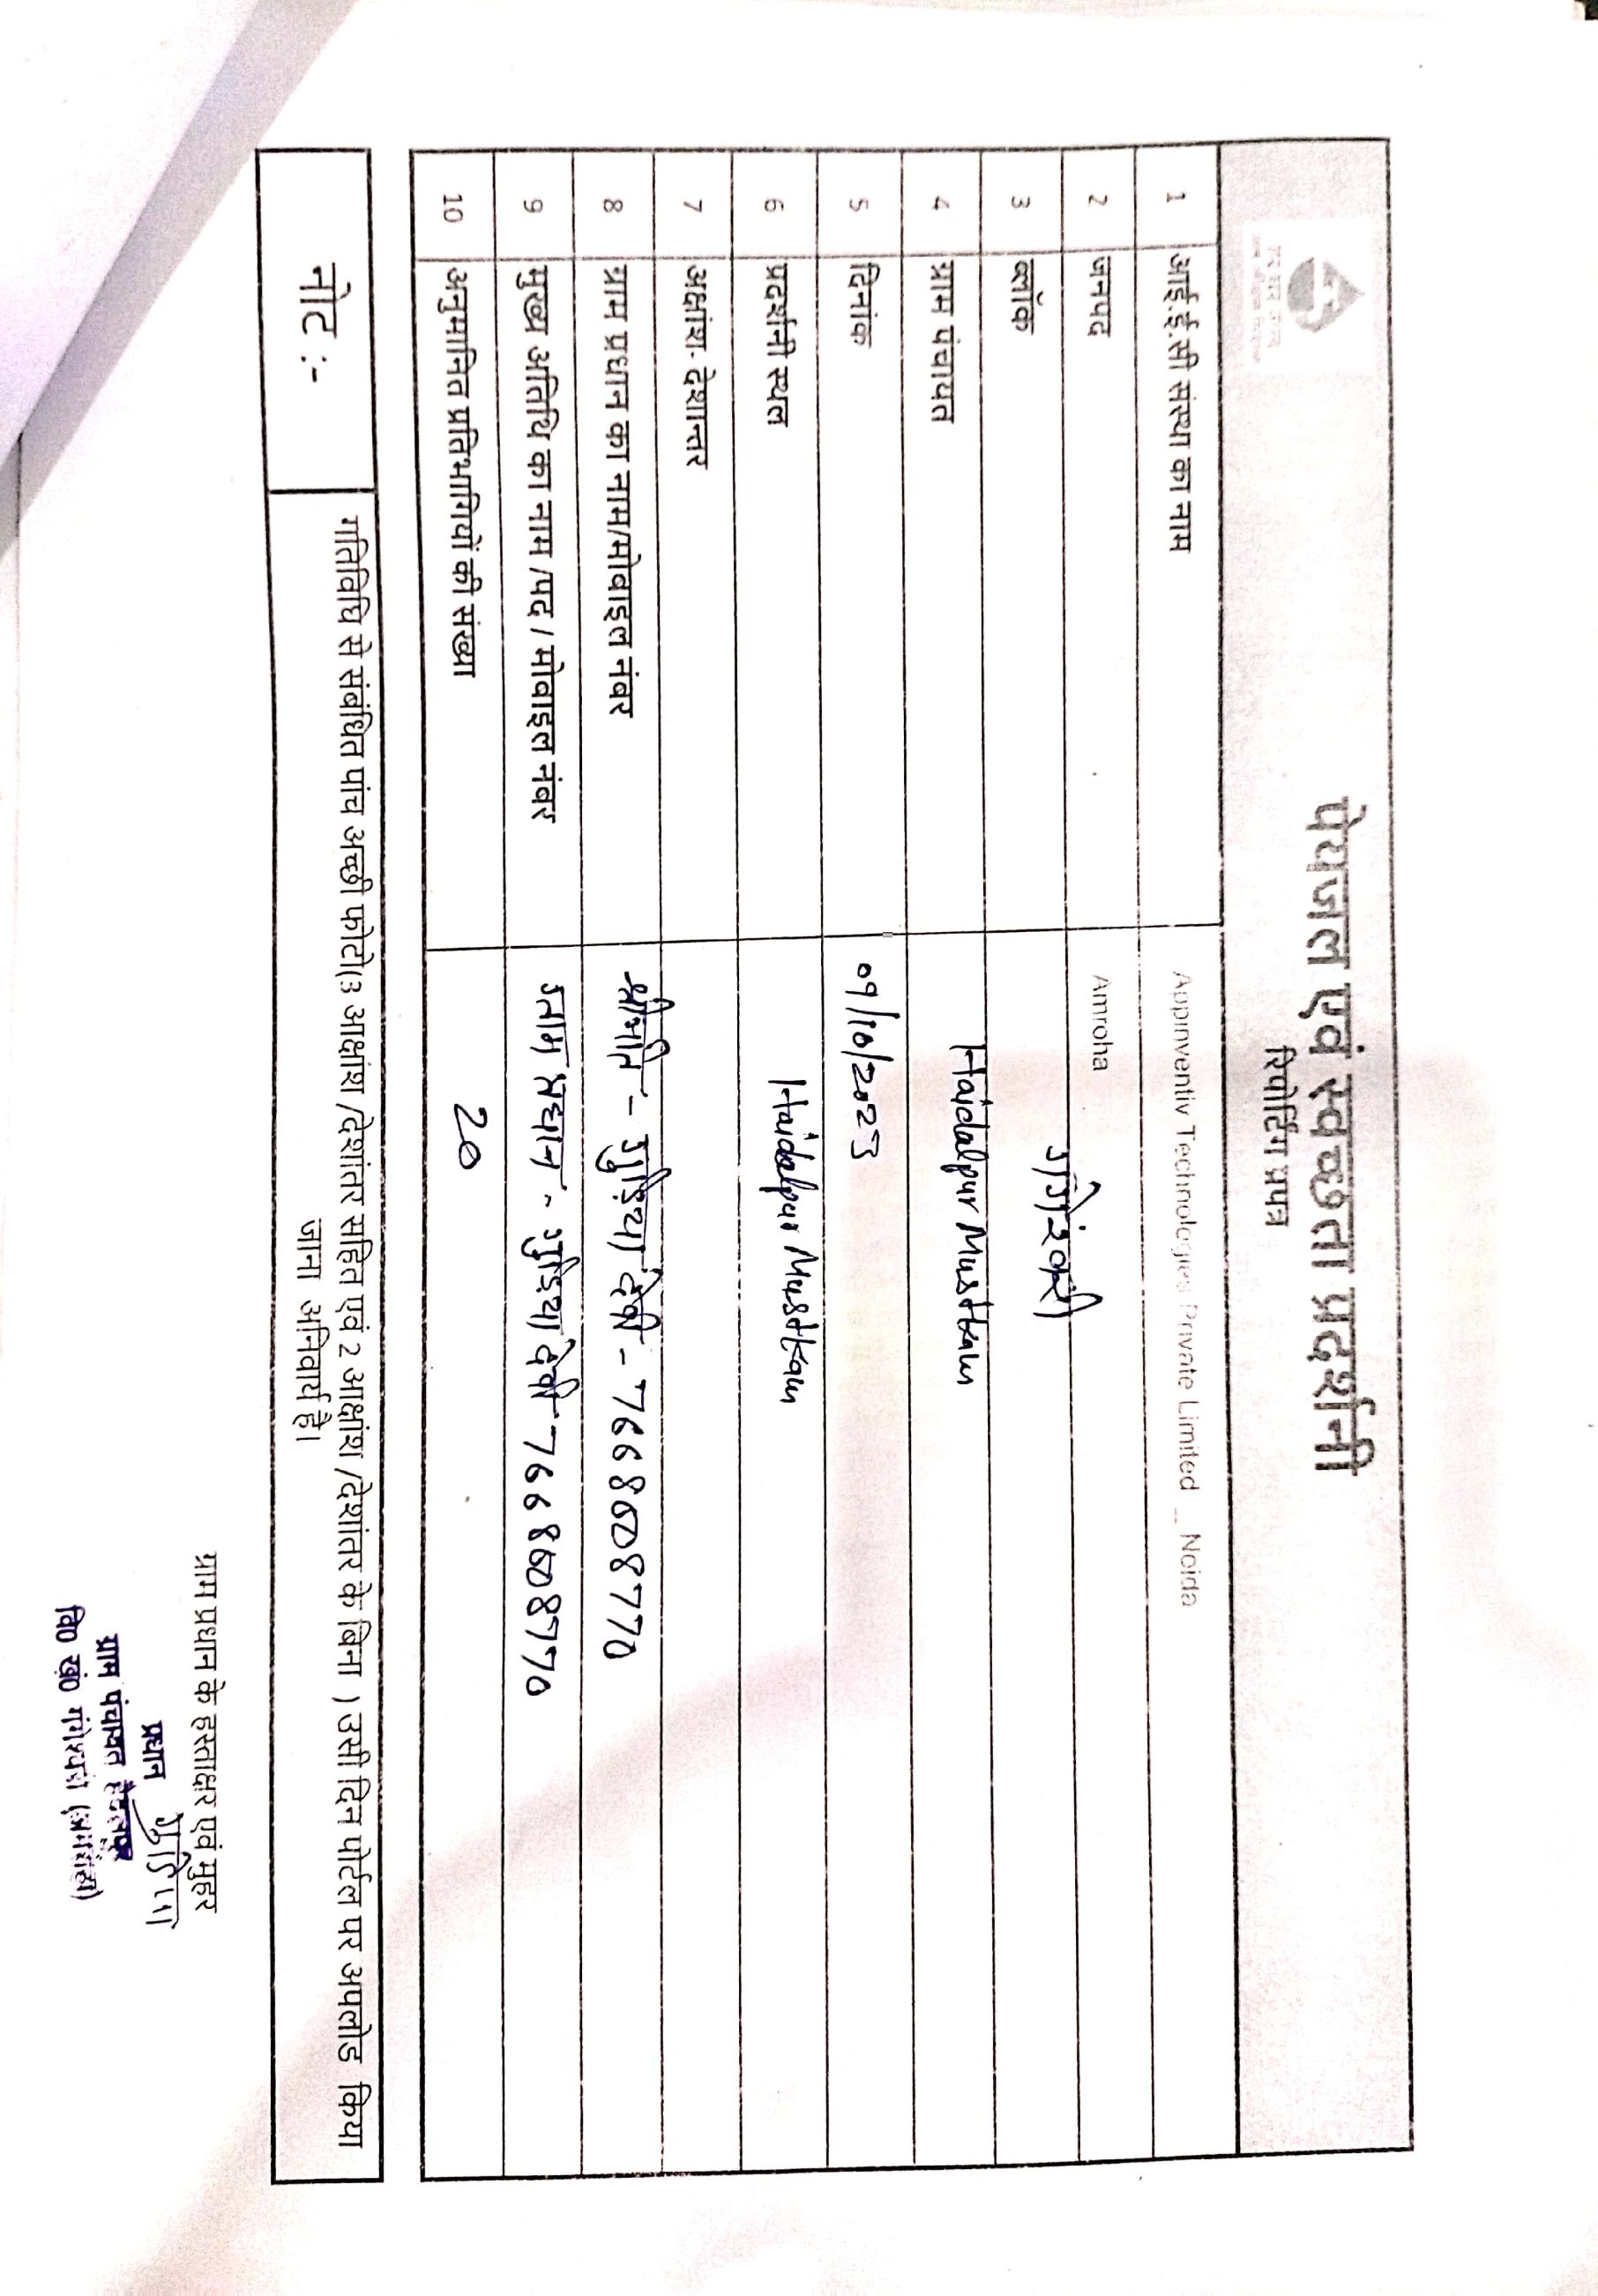 पेयजल एवं स्वच्छता प्रदर्शनी
रिपोर्टिंग प्रपत्र
1 आई.ई.सी संस्था का नाम Appinventiv Technologies Private Limited _ Noida
2 जनपद Amroha
3 ब्लॉक
4 ग्राम पंचायत Haidalpur Mustkam
5 दिनांक 09/10/2025
6 प्रदर्शनी स्थल Haidalpur Mustkam
7 अक्षांश- देशान्तर
8 ग्राम प्रधान का नाम/मोबाइल नंबर श्रीमति - गुड़िया देवी - 7668608770
9 मुख्य अतिथि का नाम /पद / मोबाइल नंबर ग्राम प्रधान - गुडिया देवी 7668608770
10 अनुमानित प्रतिभागियों की संख्या 20
नोट :-
गतिविधि से संबंधित पांच अच्छी फोटो(3 आक्षांश /देशांतर सहित एवं 2 आक्षांश /देशांतर के बिना ) उसी दिन पोर्टल पर अपलोड किया
जाना अनिवार्य है।
ग्राम प्रधान के हस्ताक्षर एवं मुहर
प्रधान
ग्राम पंचायत
वि0 खं0